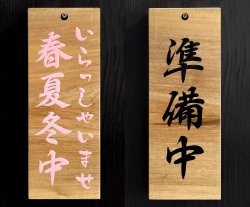 いらっしゃいませ
春夏冬中
準備中